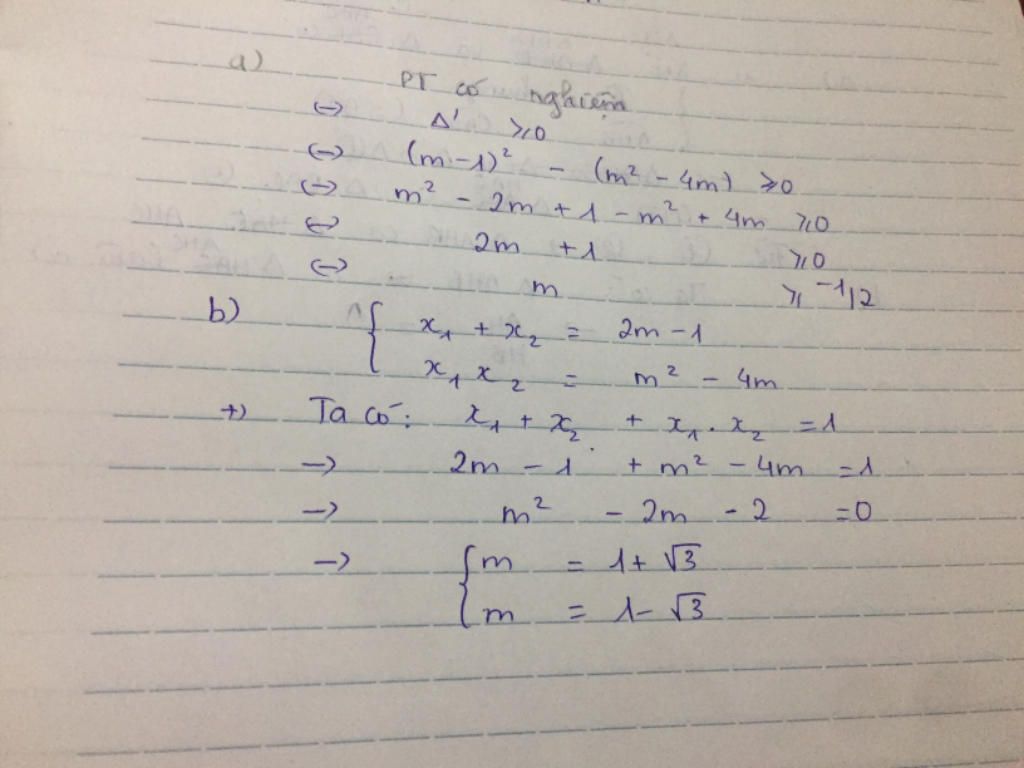 a) PT có nghiệm
<-> Δ' ≥0
<-> (m-1)² - (m² - 4m) ≥0
<-> m² - 2m + 1 - m² + 4m ≥0
<-> 2m +1 ≥0
<-> m ≥ -1/2
b) { x₁ + x₂ = 2m - 1
x₁ x₂ = m² - 4m
+) Ta có: x₁ + x₂ + x₁ . x₂ = 1
-> 2m - 1 + m² - 4m = 1
-> m² - 2m - 2 = 0
-> { m = 1+ √3
m = 1- √3